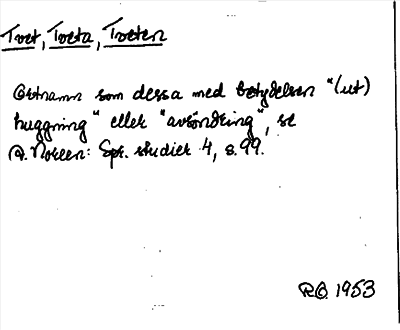 Tvet, Tveta, Tveten
Ortnamn som dessa med betydelsen "(ut)
huggning" eller "avsöndring", se
A. Noreen: Spr. studier 4, s. 99.
R.O. 1953